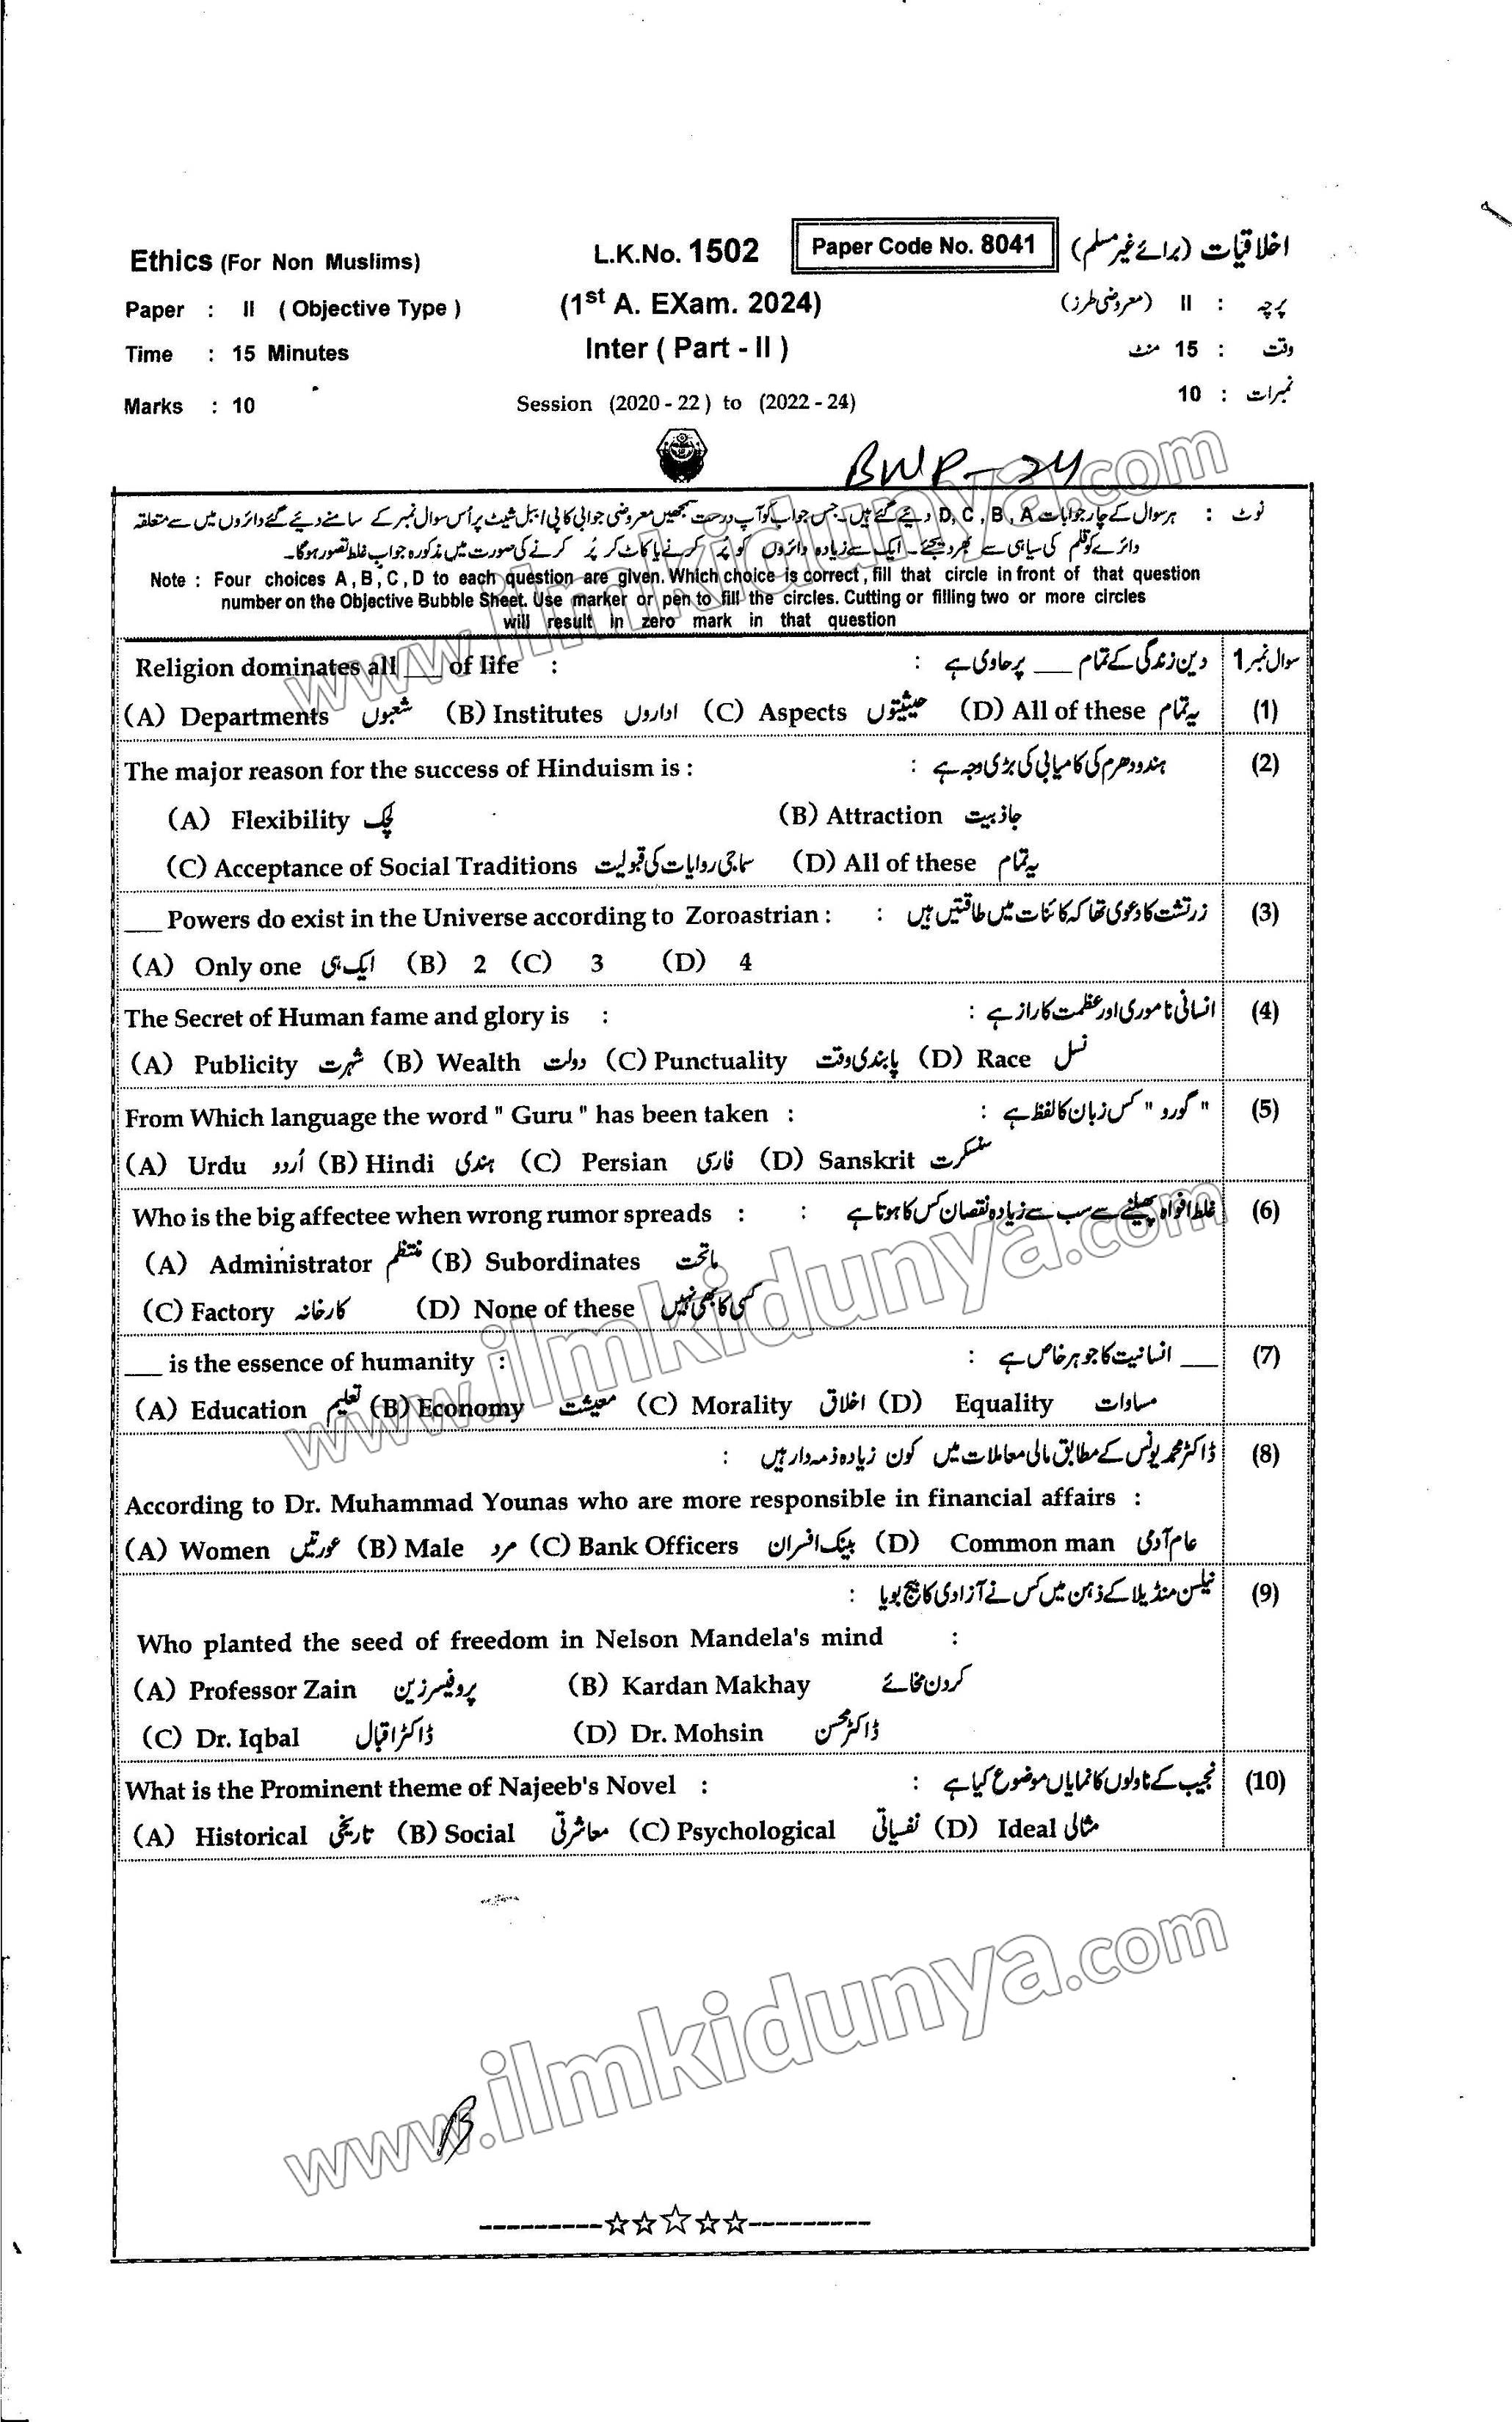 Ethics (For Non Muslims) L.K.No. 1502 Paper Code No. 8041 اخلاقیات (برائے غیر مسلم)
Paper : II ( Objective Type ) (1st A. EXam. 2024) پرچہ : II (معروضی طرز)
Time : 15 Minutes Inter ( Part - II ) وقت : 15 منٹ
Marks : 10 Session (2020 - 22 ) to (2022 - 24) نمبرات : 10
BWP-24
نوٹ : ہر سوال کے چار جوابات D, C , B , A دیئے گئے ہیں۔ جس جواب کو آپ درست سمجھیں معروضی جوابی کاپی / ببل شیٹ پر اُس سوال نمبر کے سامنے دیئے گئے دائروں میں سے متعلقہ
دائرے کو قلم کی سیاہی سے بھر دیجئے۔ ایک سے زیادہ دائروں کو پُر کرنے یا کاٹ کر پُر کرنے کی صورت میں مذکورہ جواب غلط تصور ہوگا۔
Note : Four choices A , B , C , D to each question are given. Which choice is correct , fill that circle in front of that question
number on the Objective Bubble Sheet. Use marker or pen to fill the circles. Cutting or filling two or more circles
will result in zero mark in that question
Religion dominates all ___ of life : دین زندگی کے تمام ___ پر حاوی ہے : سوال نمبر 1
(A) Departments شعبوں (B) Institutes اداروں (C) Aspects حیثیتوں (D) All of these یہ تمام (1)
The major reason for the success of Hinduism is : ہندو دھرم کی کامیابی کی بڑی وجہ ہے : (2)
(A) Flexibility لچک (B) Attraction جاذبیت
(C) Acceptance of Social Traditions سماجی روایات کی قبولیت (D) All of these یہ تمام
___ Powers do exist in the Universe according to Zoroastrian : زرتشت کا دعویٰ تھا کہ کائنات میں طاقتیں ہیں : (3)
(A) Only one ایک ہی (B) 2 (C) 3 (D) 4
The Secret of Human fame and glory is : انسانی ناموری اور عظمت کا راز ہے : (4)
(A) Publicity شہرت (B) Wealth دولت (C) Punctuality پابندی وقت (D) Race نسل
From Which language the word " Guru " has been taken : " گورو " کس زبان کا لفظ ہے : (5)
(A) Urdu اُردو (B) Hindi ہندی (C) Persian فارسی (D) Sanskrit سنسکرت
Who is the big affectee when wrong rumor spreads : غلط افواہ پھیلنے سے سب سے زیادہ نقصان کس کا ہوتا ہے : (6)
(A) Administrator منتظم (B) Subordinates ماتحت
(C) Factory کارخانہ (D) None of these کسی کا بھی نہیں
___ is the essence of humanity : ___ انسانیت کا جوہر خاص ہے : (7)
(A) Education تعلیم (B) Economy معیشت (C) Morality اخلاق (D) Equality مساوات
ڈاکٹر محمد یونس کے مطابق مالی معاملات میں کون زیادہ ذمہ دار ہیں : (8)
According to Dr. Muhammad Younas who are more responsible in financial affairs :
(A) Women عورتیں (B) Male مرد (C) Bank Officers بینک افسران (D) Common man عام آدمی
نیلسن منڈیلا کے ذہن میں کس نے آزادی کا بیج بویا : (9)
Who planted the seed of freedom in Nelson Mandela's mind :
(A) Professor Zain پروفیسر زین (B) Kardan Makhay کردن مخائے
(C) Dr. Iqbal ڈاکٹر اقبال (D) Dr. Mohsin ڈاکٹر محسن
What is the Prominent theme of Najeeb's Novel : نجیب کے ناولوں کا نمایاں موضوع کیا ہے : (10)
(A) Historical تاریخی (B) Social معاشرتی (C) Psychological نفسیاتی (D) Ideal مثالی
www.ilmkidunya.com
www.ilmkidunya.com
www.ilmkidunya.com
B